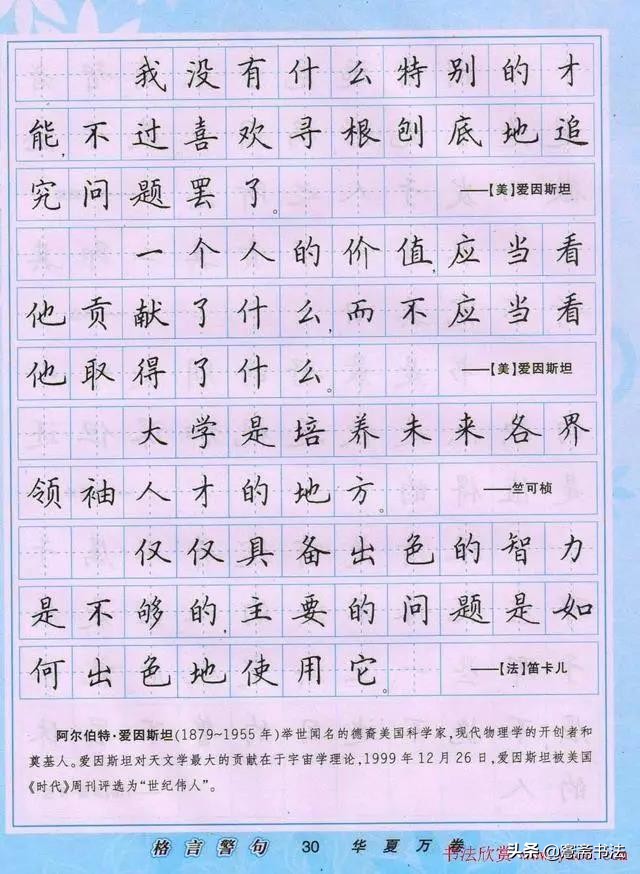 我没有什么特别的才
能,不过喜欢寻根刨底地追
究问题罢了。 ——【美】爱因斯坦
一个人的价值,应当看
他贡献了什么,而不应当看
他取得了什么。 ——【美】爱因斯坦
大学是培养未来各界
领袖人才的地方。 ——竺可桢
仅仅具备出色的智力
是不够的,主要的问题是如
何出色地使用它。 ——【法】笛卡儿
阿尔伯特·爱因斯坦(1879~1955年)举世闻名的德裔美国科学家,现代物理学的开创者和
奠基人。爱因斯坦对天文学最大的贡献在于宇宙学理论,1999年12月26日,爱因斯坦被美国
《时代》周刊评选为“世纪伟人”。
格言警句 30 华夏万卷
书法欣赏
头条 @鸢斋书法